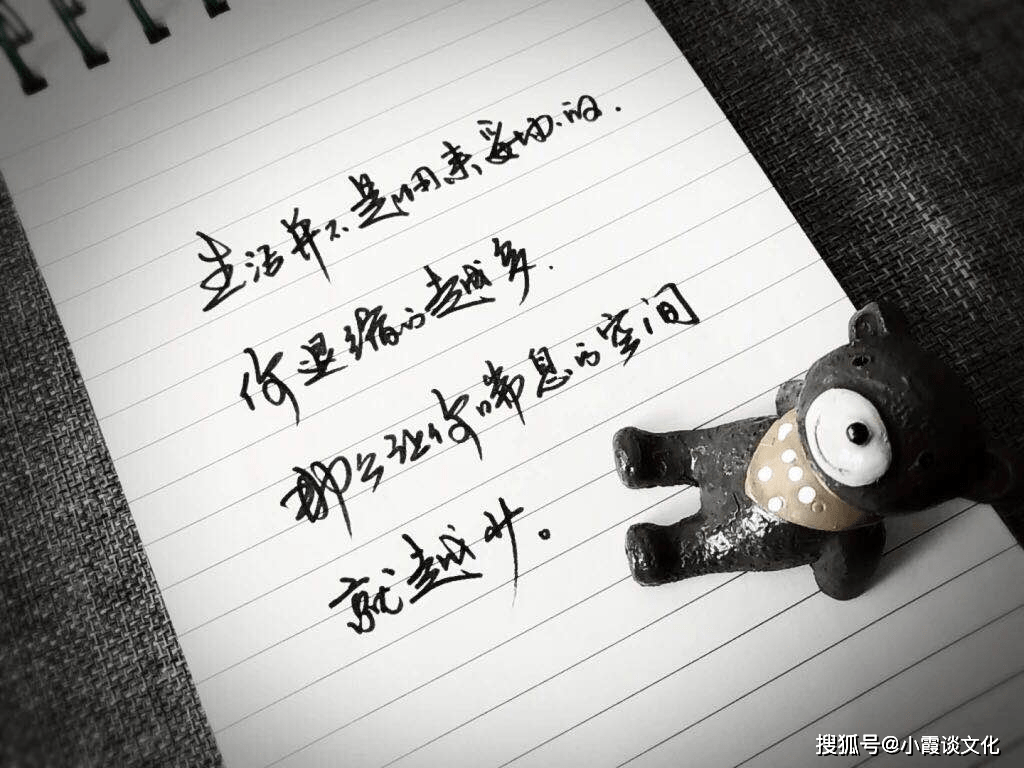 生活并不是用来妥协的.
你退缩的越多.
那么让你喘息的空间
就越少。
搜狐号@小霞谈文化